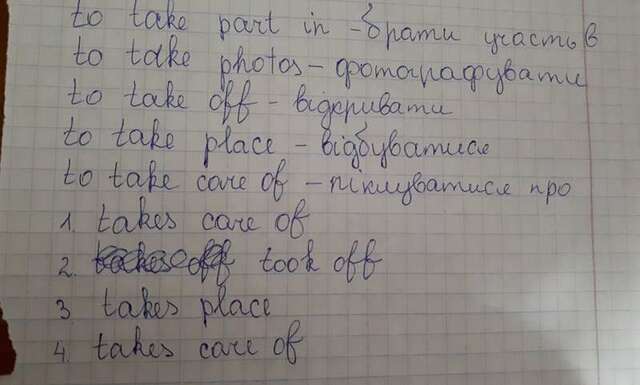 to take part in - брати участь в
to take photos - фотографувати
to take off - відкривати
to take place - відбуватися
to take care of - піклуватися про
1. takes care of
2. took off
3. takes place
4. takes care of